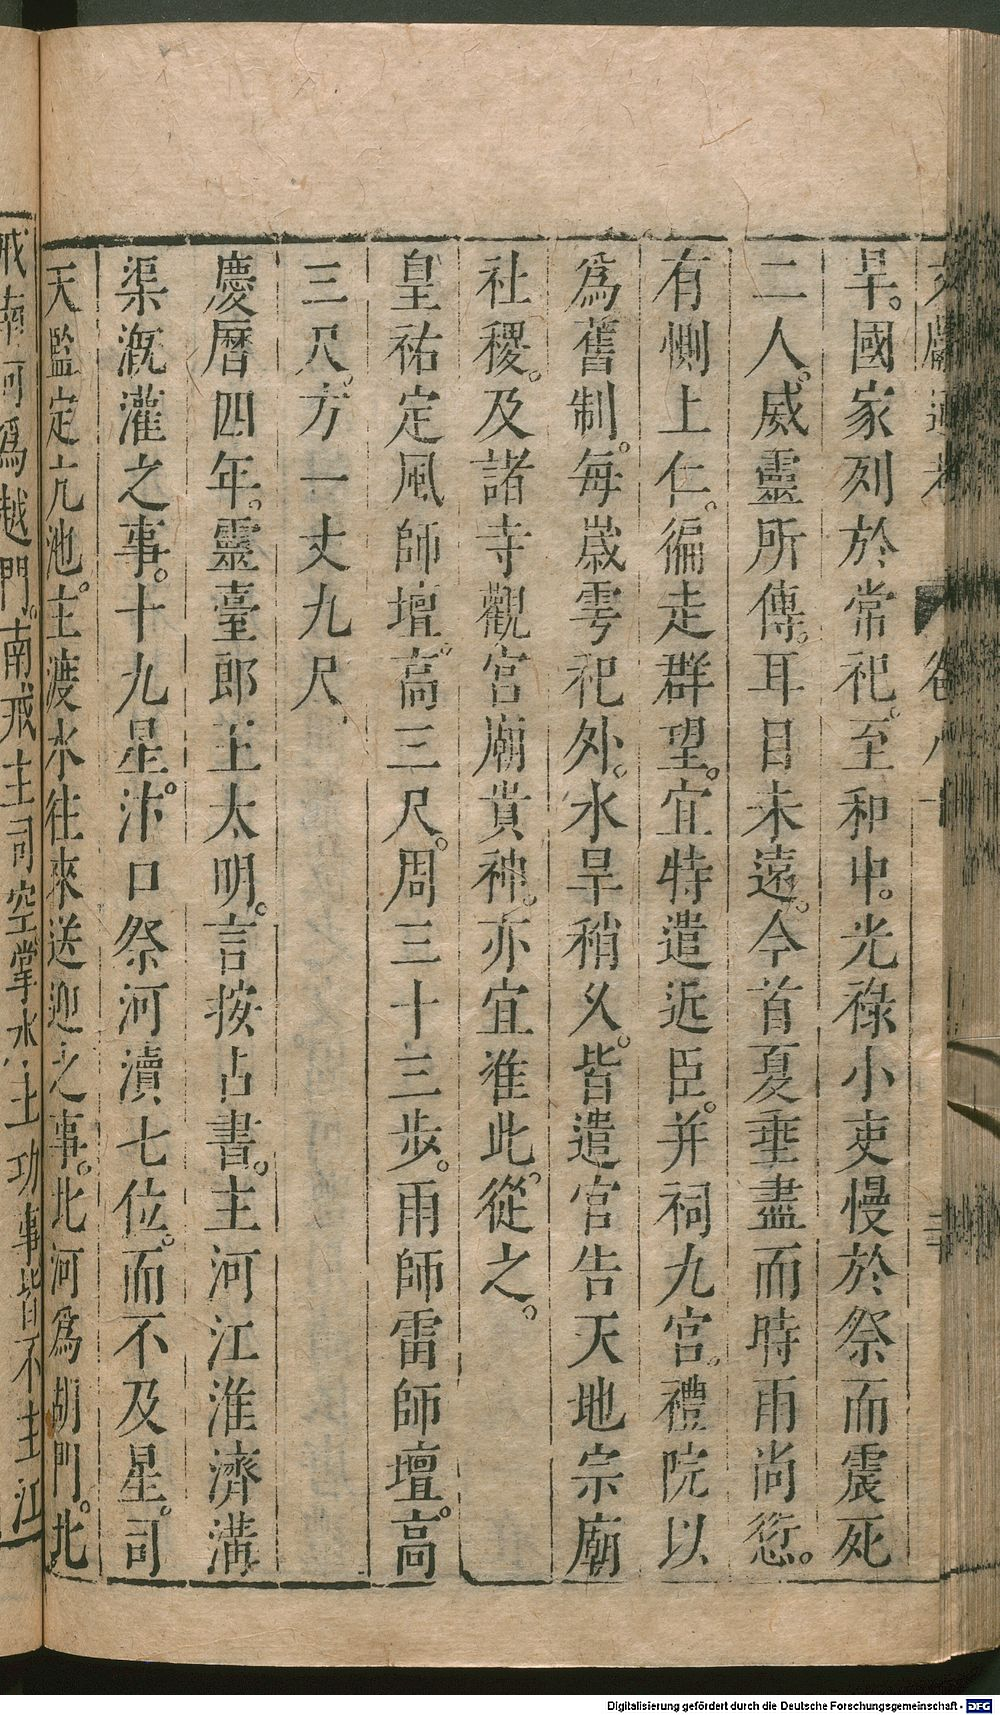 旱。國家列於常祀。至和中。光祿小吏慢於祭而震死
二人。威靈所傳。耳目未遠。今首夏垂盡而時雨尚愆。
有惻上仁。徧走群望。宜特遣近臣。并祠九宮。禮院以
爲舊制。每歲雩祀外。水旱稍久。皆遣官告天地宗廟
社稷。及諸寺觀宮廟貴神。亦宜准此。從之。
皇祐定風師壇。高三尺。周三十三步。雨師雷師壇。高
三尺。方一丈九尺
慶曆四年。靈臺郎王太明。言按占書。主河江淮濟溝
渠溉灌之事。十九星。汴口祭河瀆七位。而不及星。司
天監定亢池。主渡水往來送迎之事。北河爲胡門。北
戒南河爲越門。南戒主司空掌水土功事皆不主江
Digitalisierung gefördert durch die Deutsche Forschungsgemeinschaft - DFG